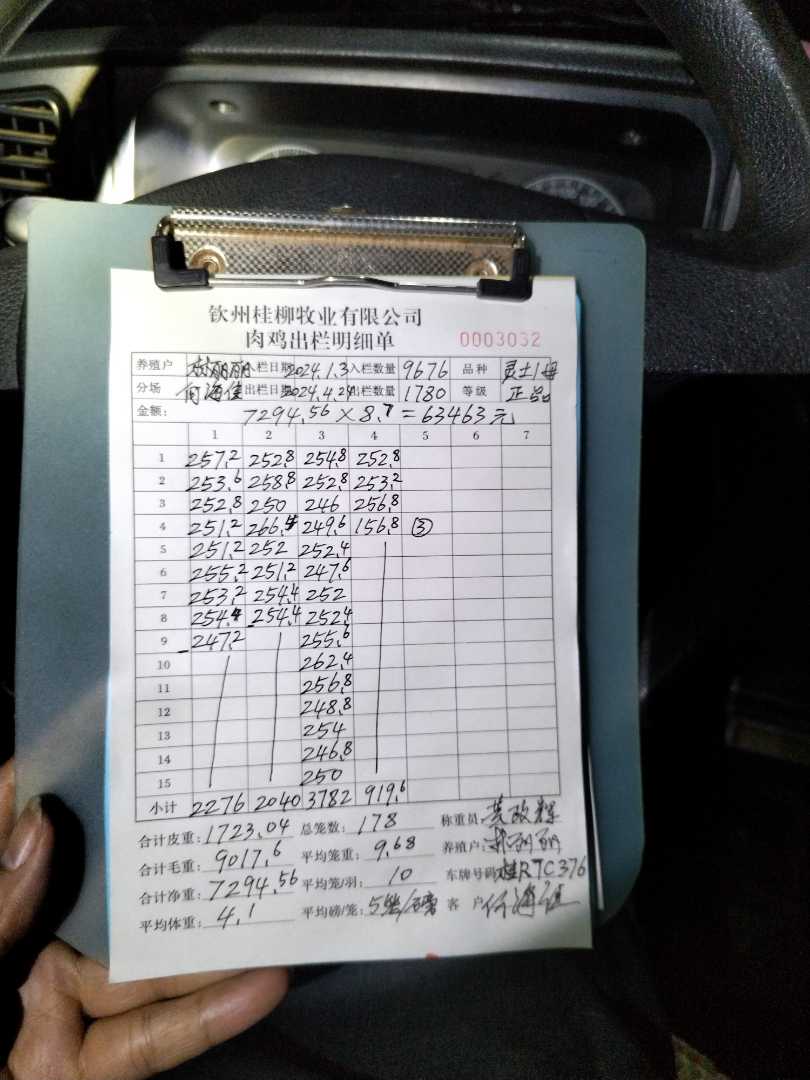 钦州桂柳牧业有限公司
肉鸡出栏明细单 0003032
养殖户 丽丽 入栏日期 2024.1.3 入栏数量 9676 品种
分场 何海佳 出栏日期 2024.4.24 出栏数量 1780 等级 正品
金额: 7294.56 × 8.7 = 63463元
1 2 3 4 5 6 7
1 257.2 252.8 254.8 252.8
2 253.6 258.8 252.8 253.2
3 252.8 250 246 256.8
4 251.2 266.4 249.6 156.8 ③
5 251.2 252 252.4
6 255.2 251.2 247.6
7 253.2 254.4 252
8 254.4 254.4 252.4
9 247.2 255.6
10 262.4
11 256.8
12 248.8
13 254
14 246.8
15 250
小计 2276 2040 3782 919.6
合计皮重: 1723.04 总笼数: 178 称重员:
合计毛重: 9017.6 平均笼重: 9.68 养殖户:
合计净重: 7294.56 平均笼/羽: 10 车牌号码: 桂RTC376
平均体重: 4.1 平均磅/笼: 5 客 户: